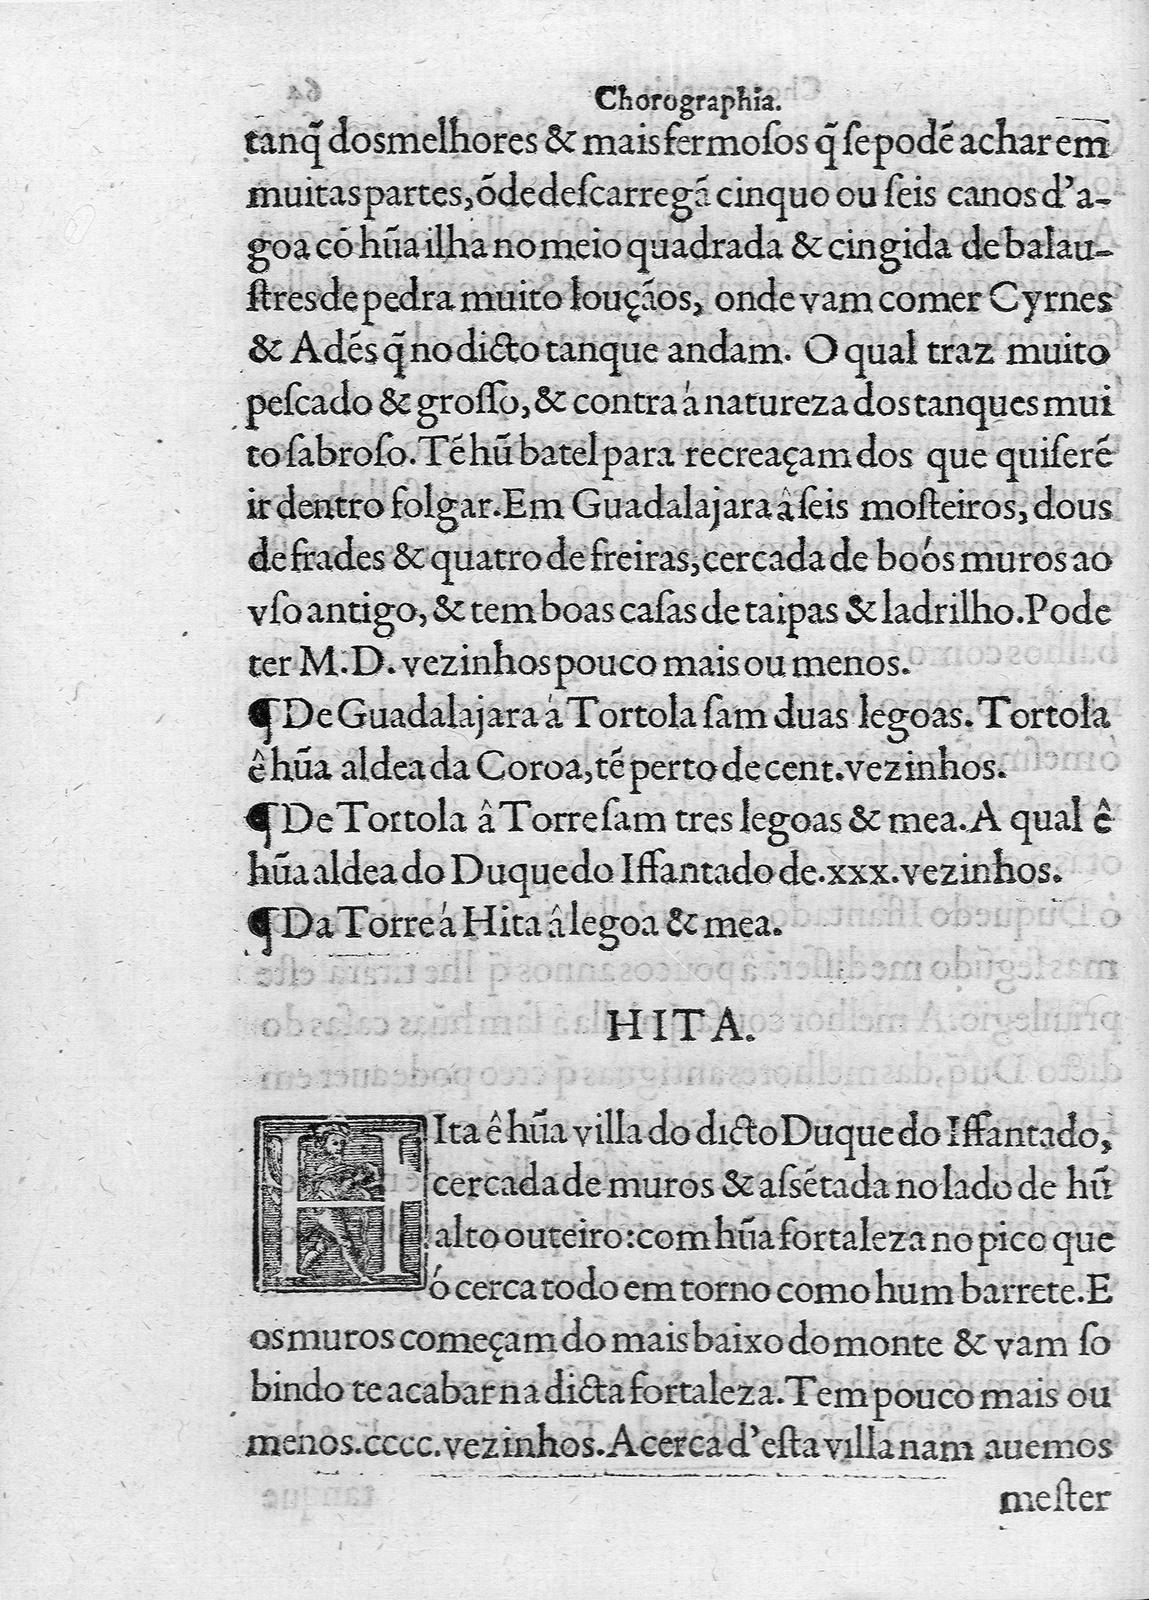 Chorographia.
tanq̃ dos melhores & mais fermoſos q̃ ſe podẽ achar em
muitas partes, õde deſcarregã cinquo ou ſeis canos d'a-
goa cõ hũa ilha no meio quadrada & cingida de balau-
ſtres de pedra muito louçãos, onde vam comer Cyrnes
& Adẽs q̃ no dicto tanque andam. O qual traz muito
peſcado & groſſo, & contra á natureza dos tanques mui
to ſabroſo. Tẽ hũ batel para recreaçam dos que quiſerẽ
ir dentro folgar. Em Guadalajara â ſeis moſteiros, dous
de frades & quatro de freiras, cercada de boós muros ao
vſo antigo, & tem boas caſas de taipas & ladrilho. Pode
ter M.D. vezinhos pouco mais ou menos.
¶ De Guadalajara á Tortola ſam duas legoas. Tortola
ê hũa aldea da Coroa, tẽ perto de cent. vezinhos.
¶ De Tortola â Torre ſam tres legoas & mea. A qual ê
hũa aldea do Duque do Iffantado de .xxx. vezinhos.
¶ Da Torre á Hita â legoa & mea.
HITA.
HIta ê hũa villa do dicto Duque do Iffantado,
cercada de muros & aſsẽtada no lado de hũ
alto outeiro: com hũa fortaleza no pico que
ó cerca todo em torno como hum barrete. E
os muros começam do mais baixo do monte & vam ſo
bindo te acabar na dicta fortaleza. Tem pouco mais ou
menos .cccc. vezinhos. Acerca d'eſta villa nam auemos
meſter